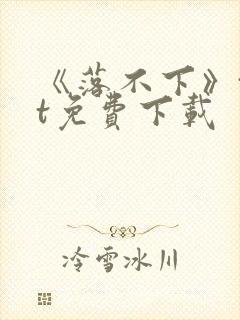 《落不下》t
t免費下載
冷雪冰川